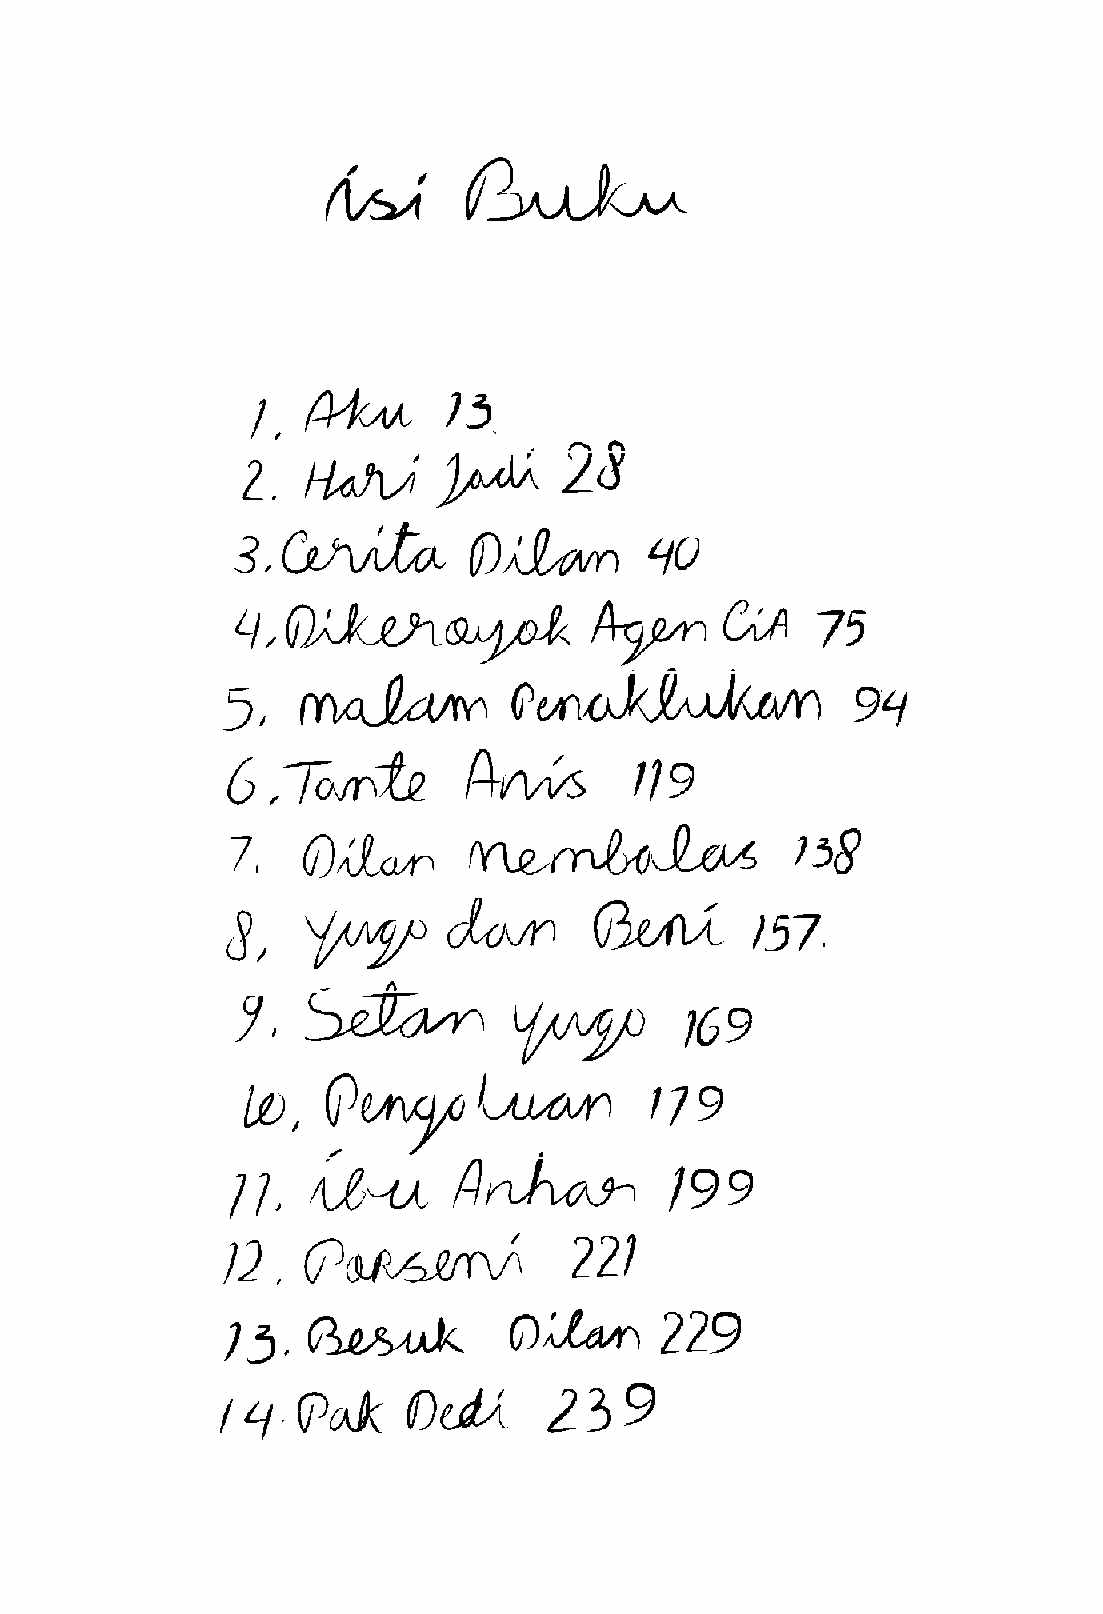 isi Buku
1. Aku 13
2. Hari Jadi 28
3. Cerita Dilan 40
4. Dikeroyok Agen CiA 75
5. malam Penaklukan 94
6. Tante Anis 119
7. Dilan membalas 138
8. Yugo dan Beni 157.
9. Setan Yugo 169
10. Pengakuan 179
11. ibu Anhar 199
12. Parseni 221
13. Besuk Dilan 229
14. Pak Dedi 239